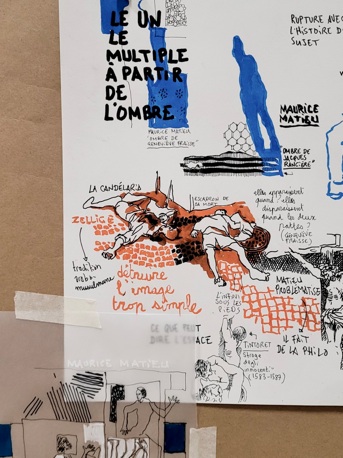 LE UN
LE
MULTIPLE
À PARTIR
DE
L'OMBRE
MAURICE MATIEU
"OMBRE DE
GENEVIÈVE FRAISSE"
RUPTURE AVEC
L'HISTOIRE D
SUJET
MAURICE
MATIEU
OMBRE DE
JACQUES
RANCIÈRE"
LA CANDÉLARIA
ESCADRON DE
LA MORT
ZELLIGE
tradition
arabo-
musulmane
détruire
l'image
trop simple
elles apparaissent
quand elles
disparaissent
quand les deux
parlées ?
(GENEVIÈVE
FRAISSE)
MATIEU
PROBLÉMATISE
L'INFINI
SOUS LES
PIEDS
IL FAIT
DE LA PHILO
CE QUE PEUT
DIRE L'ESPACE
TINTORET
Strage
degli
innocenti
(1583-1587)
MAURICE MATIEU